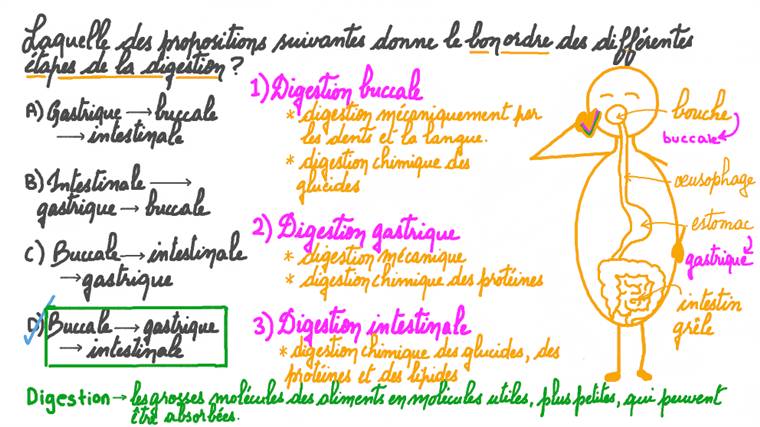 Laquelle des propositions suivantes donne le bon ordre des différentes
étapes de la digestion ?
A) Gastrique → buccale
→ intestinale
B) Intestinale →
gastrique → buccale
C) Buccale → intestinale
→ gastrique
D) Buccale → gastrique
→ intestinale
1) Digestion buccale
* digestion mécaniquement par
les dents et la langue.
* digestion chimique des
glucides
2) Digestion gastrique
* digestion mécanique
* digestion chimique des protéines
3) Digestion intestinale
* digestion chimique des glucides, des
protéines et des lipides
bouche
buccale
œusophage
estomac
gastrique
intestin
grêle
Digestion → les grosses molécules des aliments en molécules utiles, plus petites, qui peuvent
être absorbées.